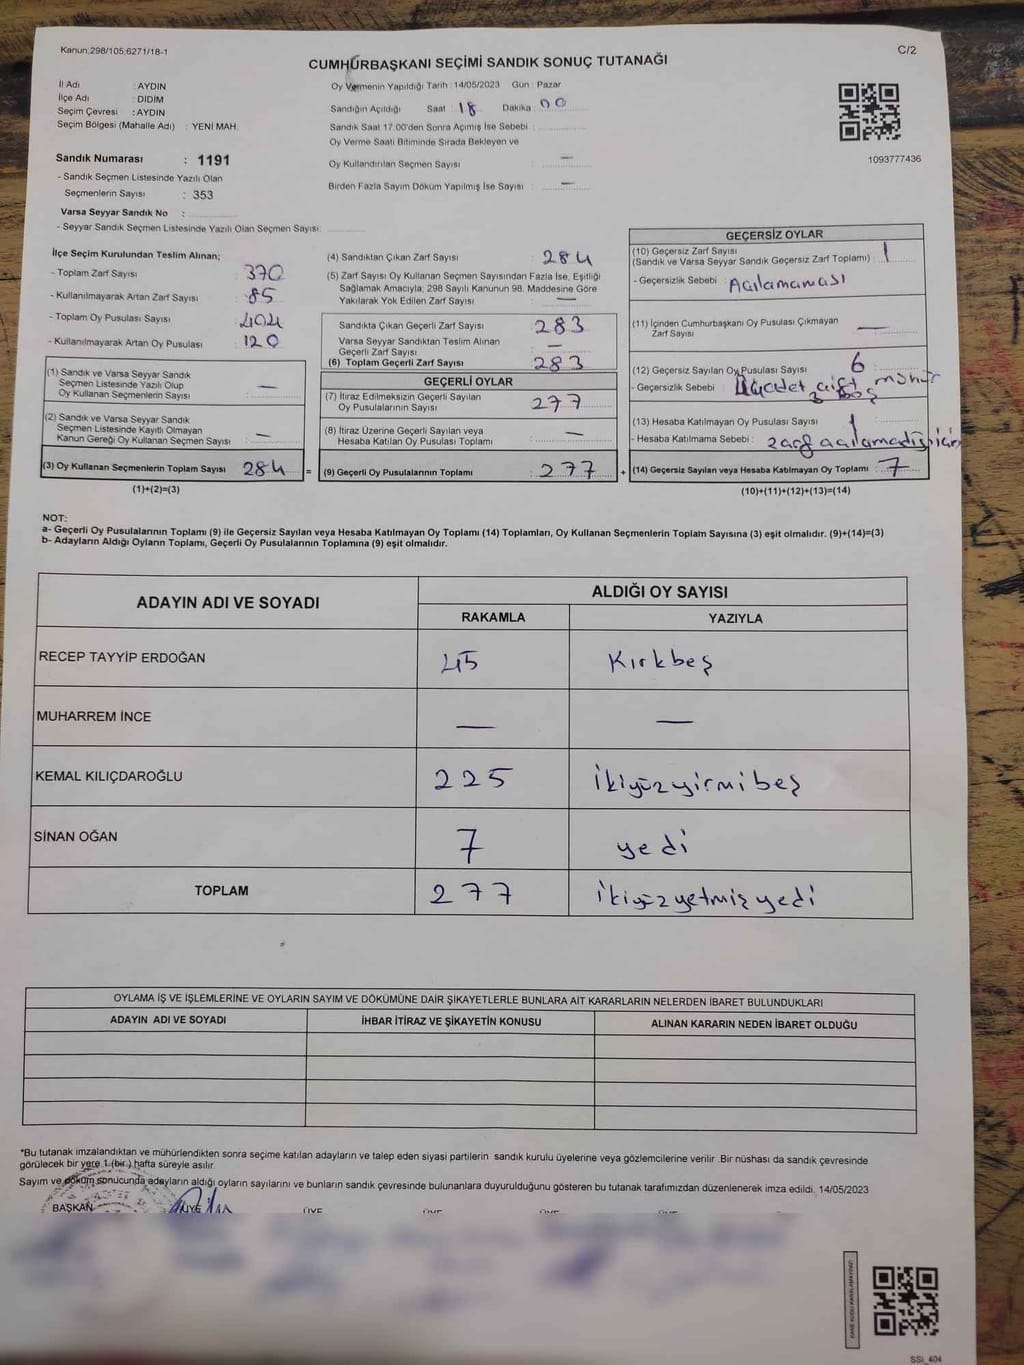 Kanun;298/105,6271/18-1
C/2
CUMHURBAŞKANI SEÇİMİ SANDIK SONUÇ TUTANAĞI
İl Adı : AYDIN
İlçe Adı : DİDİM
Seçim Çevresi : AYDIN
Seçim Bölgesi (Mahalle Adı) : YENİ MAH.
Sandık Numarası : 1191
- Sandık Seçmen Listesinde Yazılı Olan
Seçmenlerin Sayısı : 353
Varsa Seyyar Sandık No :
- Seyyar Sandık Seçmen Listesinde Yazılı Olan Seçmen Sayısı:
Oy Vermenin Yapıldığı Tarih : 14/05/2023 Gün : Pazar
Sandığın Açıldığı Saat : 18 Dakika : 00
Sandık Saat 17:00'den Sonra Açımış İse Sebebi :
Oy Verme Saati Bitiminde Sırada Bekleyen ve
Oy Kullandırılan Seçmen Sayısı : —
Birden Fazla Sayım Döküm Yapılmış İse Sayısı : —
1093777436
İlçe Seçim Kurulundan Teslim Alınan;
- Toplam Zarf Sayısı : 370
- Kullanılmayarak Artan Zarf Sayısı : 85
- Toplam Oy Pusulası Sayısı : 404
- Kullanılmayarak Artan Oy Pusulası : 120
(1) Sandık ve Varsa Seyyar Sandık
Seçmen Listesinde Yazılı Olup
Oy Kullanan Seçmenlerin Sayısı : —
(2) Sandık ve Varsa Seyyar Sandık
Seçmen Listesinde Kayıtlı Olmayan
Kanun Gereği Oy Kullanan Seçmen Sayısı : —
(3) Oy Kullanan Seçmenlerin Toplam Sayısı : 284 =
(1)+(2)=(3)
(4) Sandıktan Çıkan Zarf Sayısı : 284
(5) Zarf Sayısı Oy Kullanan Seçmen Sayısından Fazla İse, Eşitliği
Sağlamak Amacıyla; 298 Sayılı Kanunun 98. Maddesine Göre
Yakılarak Yok Edilen Zarf Sayısı : —
Sandıkta Çıkan Geçerli Zarf Sayısı : 283
Varsa Seyyar Sandıktan Teslim Alınan
Geçerli Zarf Sayısı : —
(6) Toplam Geçerli Zarf Sayısı : 283
GEÇERLİ OYLAR
(7) İtiraz Edilmeksizin Geçerli Sayılan
Oy Pusulalarının Sayısı : 277
(8) İtiraz Üzerine Geçerli Sayılan veya
Hesaba Katılan Oy Pusulası Toplamı : —
(9) Geçerli Oy Pusulalarının Toplamı : 277 +
GEÇERSİZ OYLAR
(10) Geçersiz Zarf Sayısı
(Sandık ve Varsa Seyyar Sandık Geçersiz Zarf Toplamı) : 1
- Geçersizlik Sebebi : Açılamaması
(11) İçinden Cumhurbaşkanı Oy Pusulası Çıkmayan
Zarf Sayısı : —
(12) Geçersiz Sayılan Oy Pusulası Sayısı : 6
- Geçersizlik Sebebi : çift mühür
3 boş
(13) Hesaba Katılmayan Oy Pusulası Sayısı : 1
- Hesaba Katılmama Sebebi : zarf açılamadığı için
(14) Geçersiz Sayılan veya Hesaba Katılmayan Oy Toplamı : 7
(10)+(11)+(12)+(13)=(14)
NOT:
a- Geçerli Oy Pusulalarının Toplamı (9) ile Geçersiz Sayılan veya Hesaba Katılmayan Oy Toplamı (14) Toplamları, Oy Kullanan Seçmenlerin Toplam Sayısına (3) eşit olmalıdır. (9)+(14)=(3)
b- Adayların Aldığı Oyların Toplamı, Geçerli Oy Pusulalarının Toplamına (9) eşit olmalıdır.
ADAYIN ADI VE SOYADI ALDIĞI OY SAYISI
RAKAMLA YAZIYLA
RECEP TAYYİP ERDOĞAN 45 Kırkbeş
MUHARREM İNCE — —
KEMAL KILIÇDAROĞLU 225 İkiyüzyirmibeş
SİNAN OĞAN 7 yedi
TOPLAM 277 ikiyüzyetmişyedi
OYLAMA İŞ VE İŞLEMLERİNE VE OYLARIN SAYIM VE DÖKÜMÜNE DAİR ŞİKAYETLERLE BUNLARA AİT KARARLARIN NELERDEN İBARET BULUNDUKLARI
ADAYIN ADI VE SOYADI İHBAR İTİRAZ VE ŞİKAYETİN KONUSU ALINAN KARARIN NEDEN İBARET OLDUĞU
*Bu tutanak imzalandıktan ve mühürlendikten sonra seçime katılan adayların ve talep eden siyasi partilerin sandık kurulu üyelerine veya gözlemcilerine verilir. Bir nüshası da sandık çevresinde
görülecek bir yere 1 (bir) hafta süreyle asılır.
Sayım ve döküm sonucunda adayların aldığı oyların sayılarını ve bunların sandık çevresinde bulunanlara duyurulduğunu gösteren bu tutanak tarafımızdan düzenlenerek imza edildi. 14/05/2023
BAŞKAN ÜYE ÜYE ÜYE ÜYE ÜYE
SSİ_404